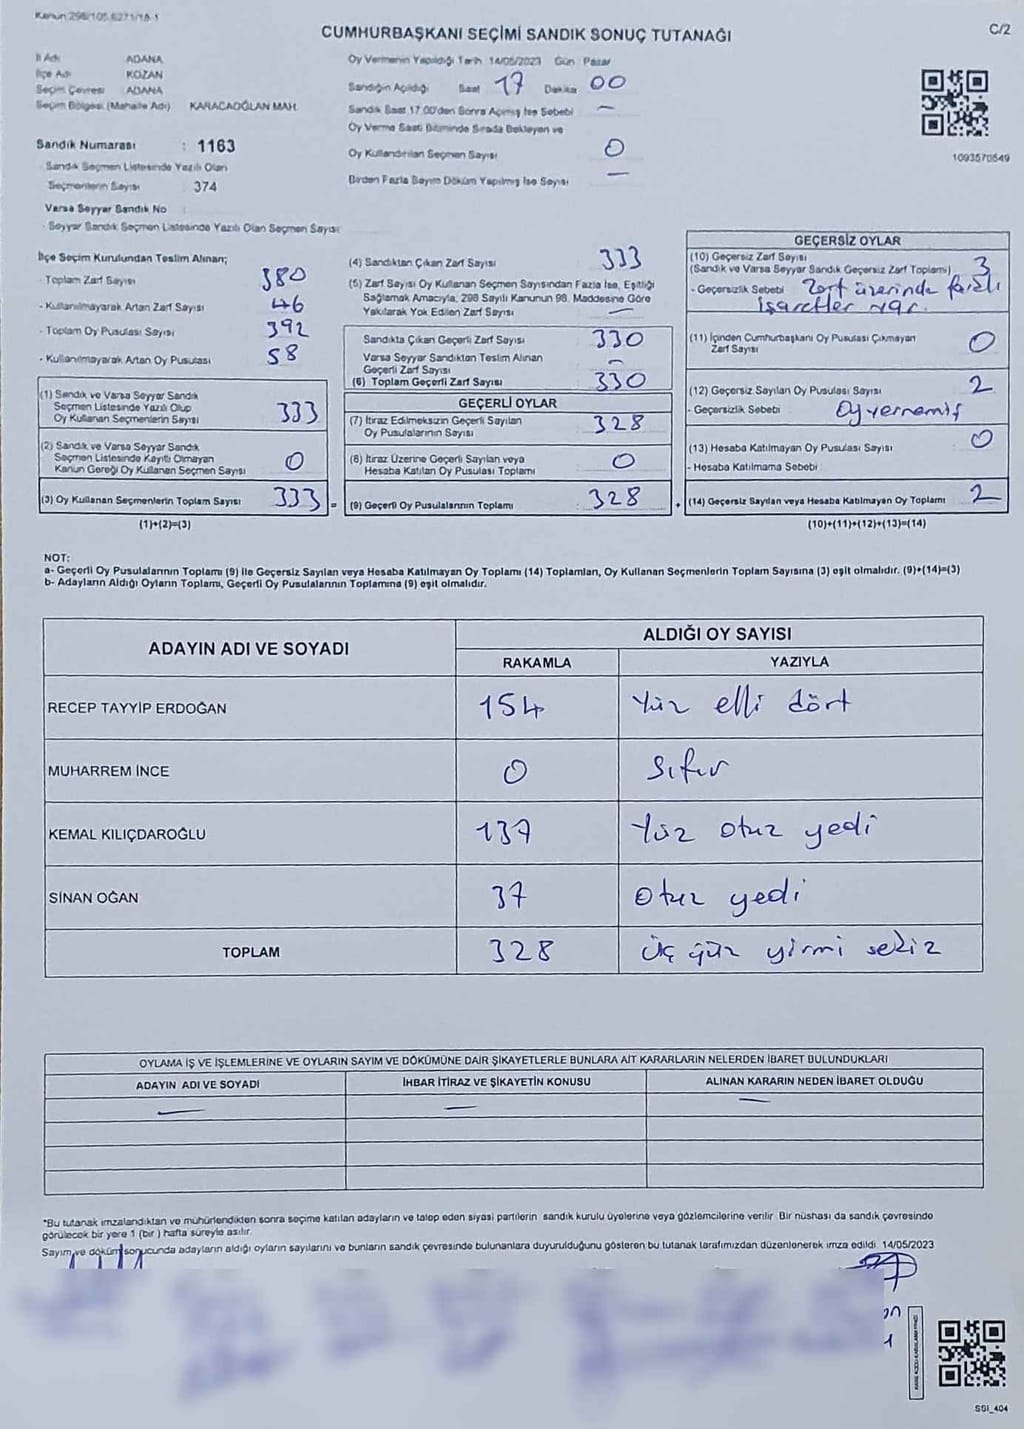 Kanun:298/105,6271/18-1
CUMHURBAŞKANI SEÇİMİ SANDIK SONUÇ TUTANAĞI
C/2
İl Adı ADANA
İlçe Adı KOZAN
Seçim Çevresi ADANA
Seçim Bölgesi (Mahalle Adı) KARACAOĞLAN MAH.
Sandık Numarası : 1163
- Sandık Seçmen Listesinde Yazılı Olan
Seçmenlerin Sayısı 374
Varsa Seyyar Sandık No
- Seyyar Sandık Seçmen Listesinde Yazılı Olan Seçmen Sayısı:
Oy Vermenin Yapıldığı Tarih 14/05/2023 Gün Pazar
Sandığın Açıldığı Saat 17 Dakika 00
Sandık Saat 17.00'den Sonra Açılmış İse Sebebi —
Oy Verme Saati Bitiminde Sırada Bekleyen ve
Oy Kullandırılan Seçmen Sayısı 0
Birden Fazla Sayım Döküm Yapılmış İse Sayısı —
1093570549
İlçe Seçim Kurulundan Teslim Alınan;
- Toplam Zarf Sayısı 380
- Kullanılmayarak Artan Zarf Sayısı 46
- Toplam Oy Pusulası Sayısı 392
- Kullanılmayarak Artan Oy Pusulası 58
(1) Sandık ve Varsa Seyyar Sandık
Seçmen Listesinde Yazılı Olup
Oy Kullanan Seçmenlerin Sayısı 333
(2) Sandık ve Varsa Seyyar Sandık
Seçmen Listesinde Kayıtlı Olmayan
Kanun Gereği Oy Kullanan Seçmen Sayısı 0
(3) Oy Kullanan Seçmenlerin Toplam Sayısı 333 =
(1)+(2)=(3)
(4) Sandıktan Çıkan Zarf Sayısı 333
(5) Zarf Sayısı Oy Kullanan Seçmen Sayısından Fazla İse, Eşitliği
Sağlamak Amacıyla, 298 Sayılı Kanunun 98. Maddesine Göre
Yakılarak Yok Edilen Zarf Sayısı —
Sandıkta Çıkan Geçerli Zarf Sayısı 330
Varsa Seyyar Sandıktan Teslim Alınan
Geçerli Zarf Sayısı —
(6) Toplam Geçerli Zarf Sayısı 330
GEÇERLİ OYLAR
(7) İtiraz Edilmeksizin Geçerli Sayılan
Oy Pusulalarının Sayısı 328
(8) İtiraz Üzerine Geçerli Sayılan veya
Hesaba Katılan Oy Pusulası Toplamı 0
(9) Geçerli Oy Pusulalarının Toplamı : 328 +
GEÇERSİZ OYLAR
(10) Geçersiz Zarf Sayısı
(Sandık ve Varsa Seyyar Sandık Geçersiz Zarf Toplamı) 3
- Geçersizlik Sebebi Zarf üzerinde farklı
işaretler var.
(11) İçinden Cumhurbaşkanı Oy Pusulası Çıkmayan
Zarf Sayısı 0
(12) Geçersiz Sayılan Oy Pusulası Sayısı 2
- Geçersizlik Sebebi Oy vermemiş
(13) Hesaba Katılmayan Oy Pusulası Sayısı 0
- Hesaba Katılmama Sebebi
(14) Geçersiz Sayılan veya Hesaba Katılmayan Oy Toplamı 2
(10)+(11)+(12)+(13)=(14)
NOT:
a- Geçerli Oy Pusulalarının Toplamı (9) ile Geçersiz Sayılan veya Hesaba Katılmayan Oy Toplamı (14) Toplamları, Oy Kullanan Seçmenlerin Toplam Sayısına (3) eşit olmalıdır. (9)+(14)=(3)
b- Adayların Aldığı Oyların Toplamı, Geçerli Oy Pusulalarının Toplamına (9) eşit olmalıdır.
ADAYIN ADI VE SOYADI ALDIĞI OY SAYISI
RAKAMLA YAZIYLA
RECEP TAYYİP ERDOĞAN 154 Yüz elli dört
MUHARREM İNCE 0 Sıfır
KEMAL KILIÇDAROĞLU 137 Yüz otuz yedi
SİNAN OĞAN 37 Otuz yedi
TOPLAM 328 Üç yüz yirmi sekiz
OYLAMA İŞ VE İŞLEMLERİNE VE OYLARIN SAYIM VE DÖKÜMÜNE DAİR ŞİKAYETLERLE BUNLARA AİT KARARLARIN NELERDEN İBARET BULUNDUKLARI
ADAYIN ADI VE SOYADI İHBAR İTİRAZ VE ŞİKAYETİN KONUSU ALINAN KARARIN NEDEN İBARET OLDUĞU
— — —
*Bu tutanak imzalandıktan ve mühürlendikten sonra seçime katılan adayların ve talep eden siyasi partilerin sandık kurulu üyelerine veya gözlemcilerine verilir. Bir nüshası da sandık çevresinde
görülecek bir yere 1 (bir ) hafta süreyle asılır.
Sayım ve döküm sonucunda adayların aldığı oyların sayılarını ve bunların sandık çevresinde bulunanlara duyurulduğunu gösteren bu tutanak tarafımızdan düzenlenerek imza edildi. 14/05/2023
SSI_404